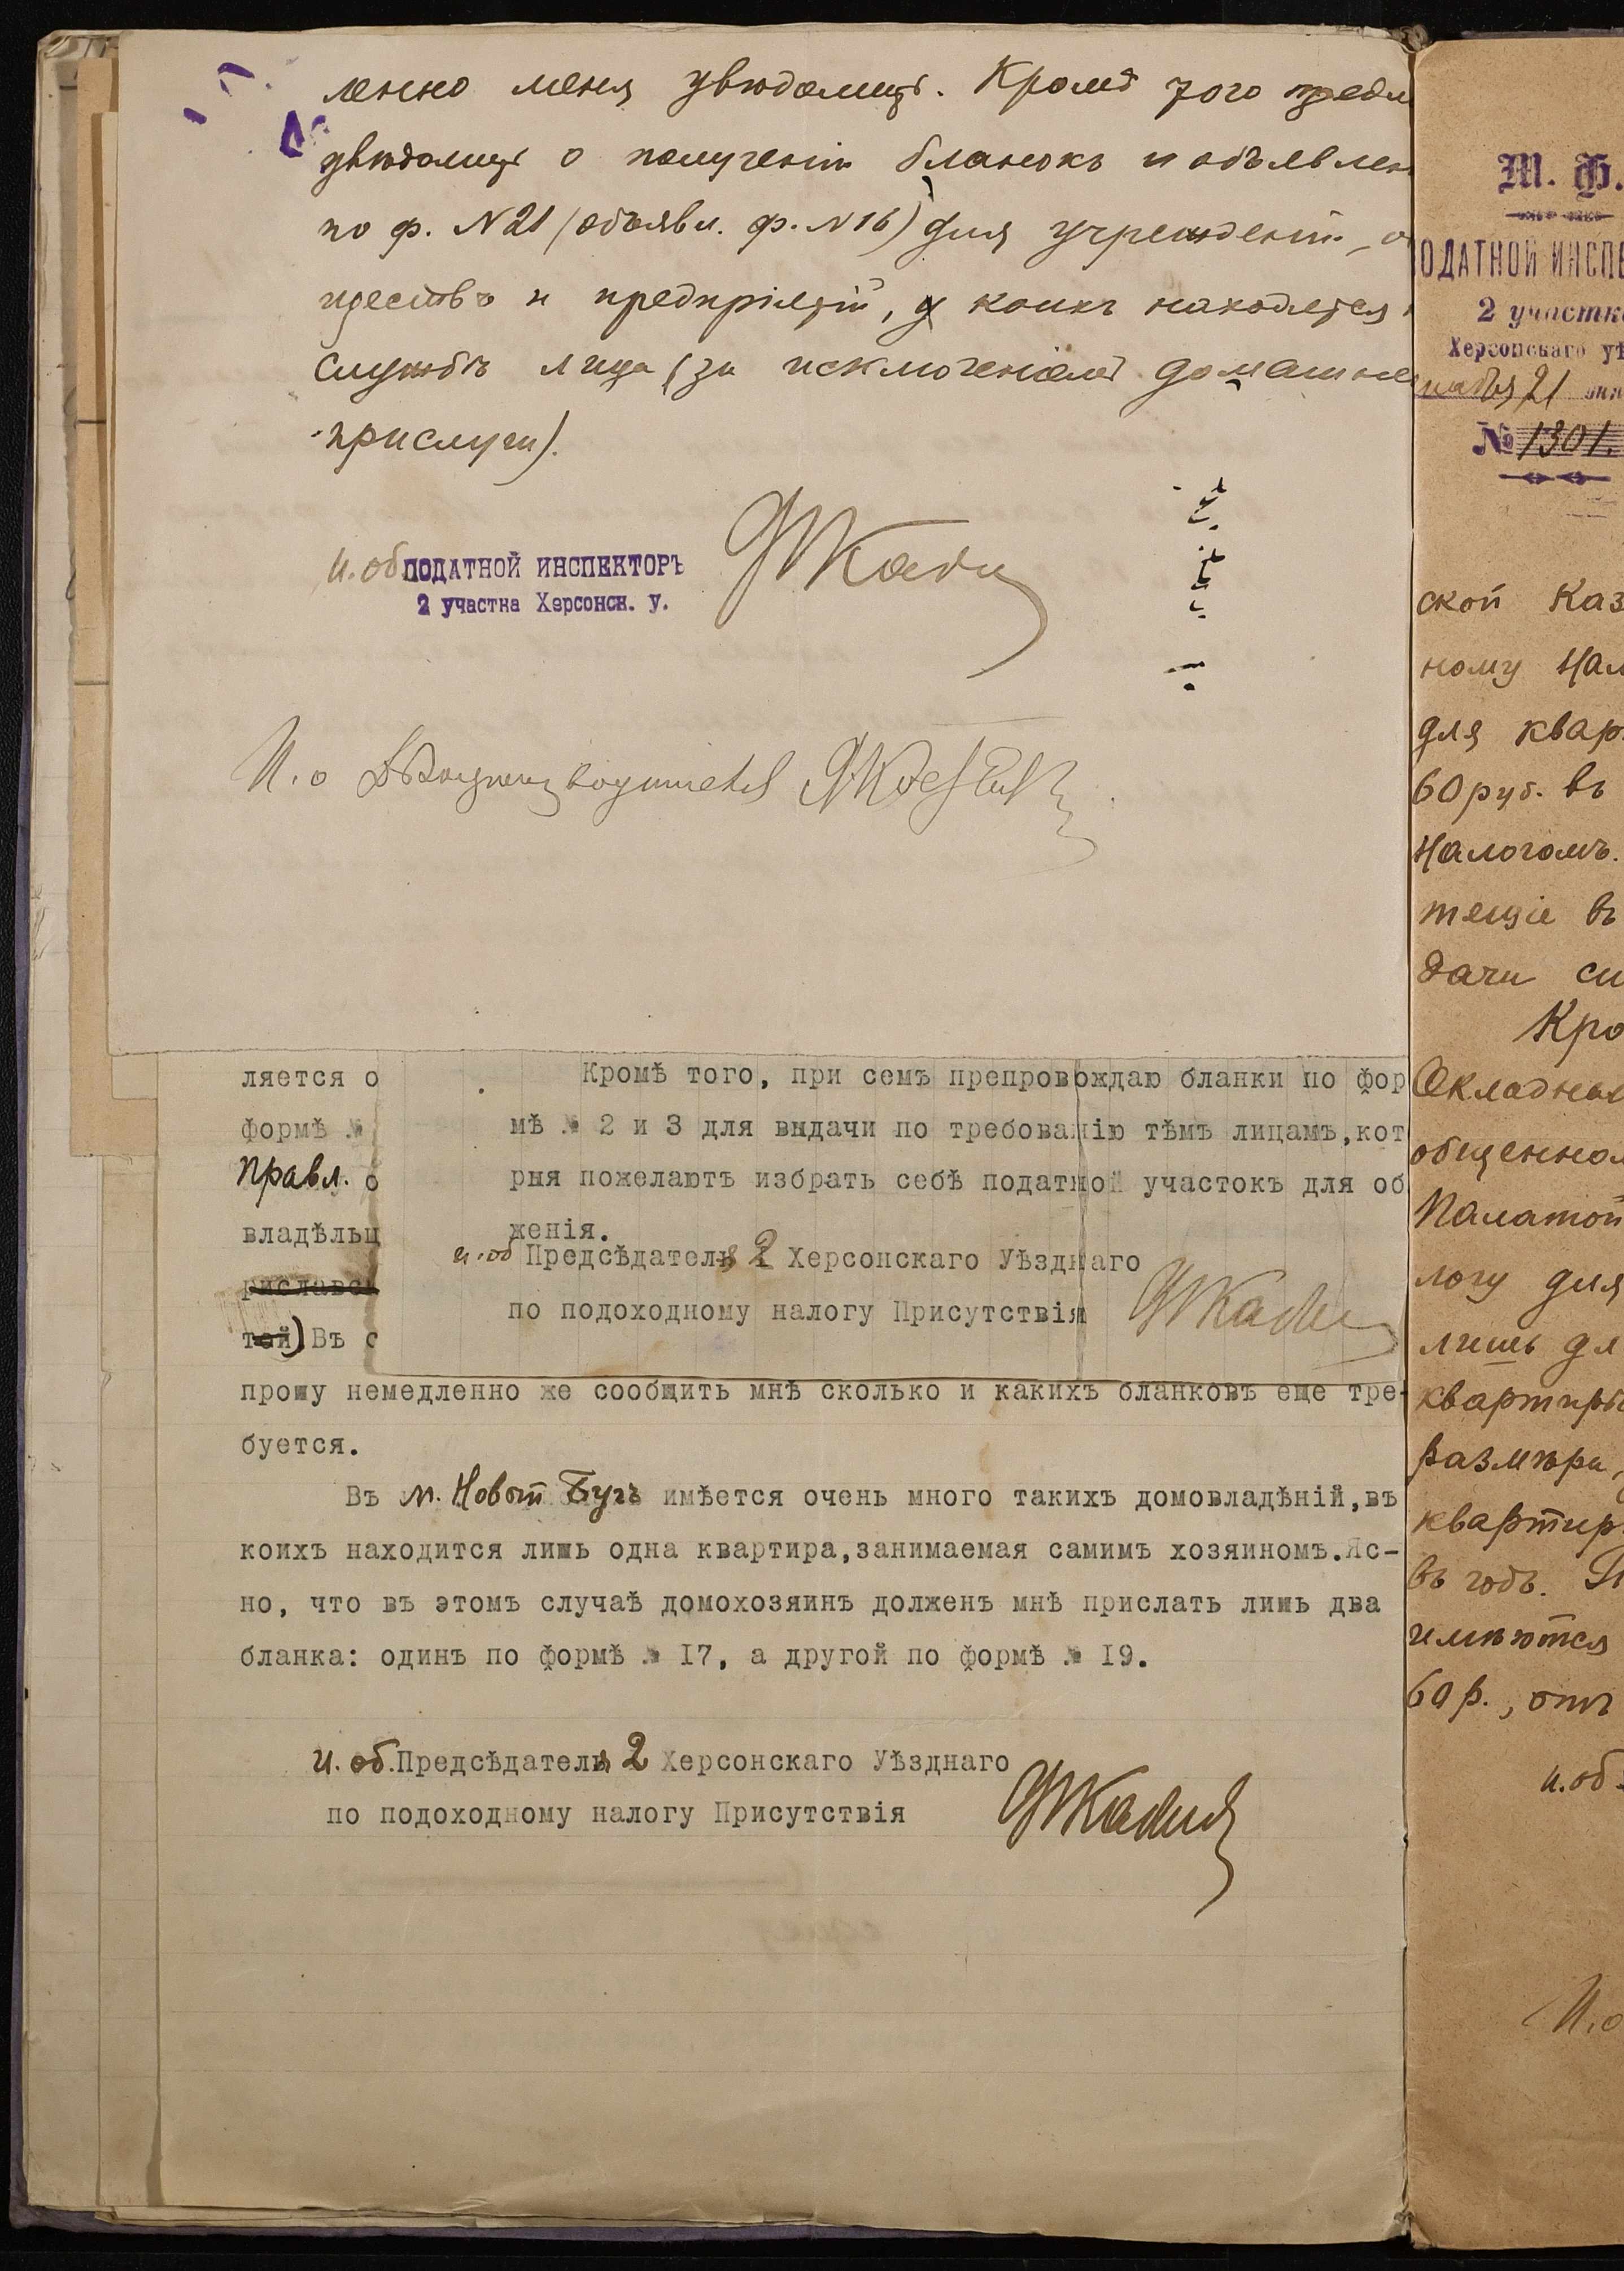 ленно меня увѣдомить. Кромѣ того предл
увѣдомить о полученіи бланокъ и объявлен
по ф. N 21 (объявл. ф. N 16) для учрежденій, о
ществъ и предпріятій, у коихъ находятся
службѣ лица (за исключеніемъ домашне
прислуги).
и. об ПОДАТНОЙ ИНСПЕКТОРЪ
2 участка Херсонск. у.
И. о Дѣлопроизводителя
ляется о
формѣ №
Правл. о
владѣльц
риславск
той) Въ с
Кромѣ того, при семъ препровождаю бланки по фор
мѣ № 2 и 3 для выдачи по требованію тѣмъ лицамъ,кот
рыя пожелаютъ избрать себѣ податной участокъ для об
женія.
и.об Предсѣдателя 2 Херсонскаго Уѣзднаго
по подоходному налогу Присутствія
прошу немедленно же сообщить мнѣ сколько и какихъ бланковъ еще тре-
буется.
Въ м. Новый Бугъ имѣется очень много такихъ домовладѣній,въ
коихъ находится лишь одна квартира,занимаемая самимъ хозяиномъ.Яс-
но, что въ этомъ случаѣ домохозяинъ долженъ мнѣ прислать лишь два
бланка: одинъ по формѣ № I7, а другой по формѣ № I9.
и. об. Предсѣдателя 2 Херсонскаго Уѣзднаго
по подоходному налогу Присутствія
М. Ф.
ОДАТНОЙ ИНСПЕ
2 участк
Херсонскаго уѣ
21
№ 1301.
ской Каз
ному Нал
для квар
60 руб. въ
Налогомъ.
тещіе въ
дачи си
Кро
Окладных
общенном
Палатой
логу для
лишь дл
квартиры
размѣра,
квартир
въ годъ.
имѣются
60 р., отъ
и. об.
И. о